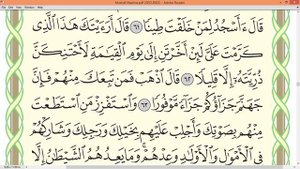 قَالَ ءَأَسْجُدُ لِمَنْ خَلَقْتَ طِينًا ٦١ قَالَ أَرَءَيْتَكَ هَٰذَا ٱلَّذِى
كَرَّمْتَ عَلَىَّ لَئِنْ أَخَّرْتَنِ إِلَىٰ يَوْمِ ٱلْقِيَٰمَةِ لَأَحْتَنِكَنَّ
ذُرِّيَّتَهُۥٓ إِلَّا قَلِيلًا ٦٢ قَالَ ٱذْهَبْ فَمَن تَبِعَكَ مِنْهُمْ فَإِنَّ
جَهَنَّمَ جَزَآؤُكُمْ جَزَآءً مَّوْفُورًا ٦٣ وَٱسْتَفْزِزْ مَنِ ٱسْتَطَعْتَ
مِنْهُم بِصَوْتِكَ وَأَجْلِبْ عَلَيْهِم بِخَيْلِكَ وَرَجِلِكَ وَشَارِكْهُمْ
فِى ٱلْأَمْوَٰلِ وَٱلْأَوْلَٰدِ وَعِدْهُمْ ۚ وَمَا يَعِدُهُمُ ٱلشَّيْطَٰنُ إِلَّا